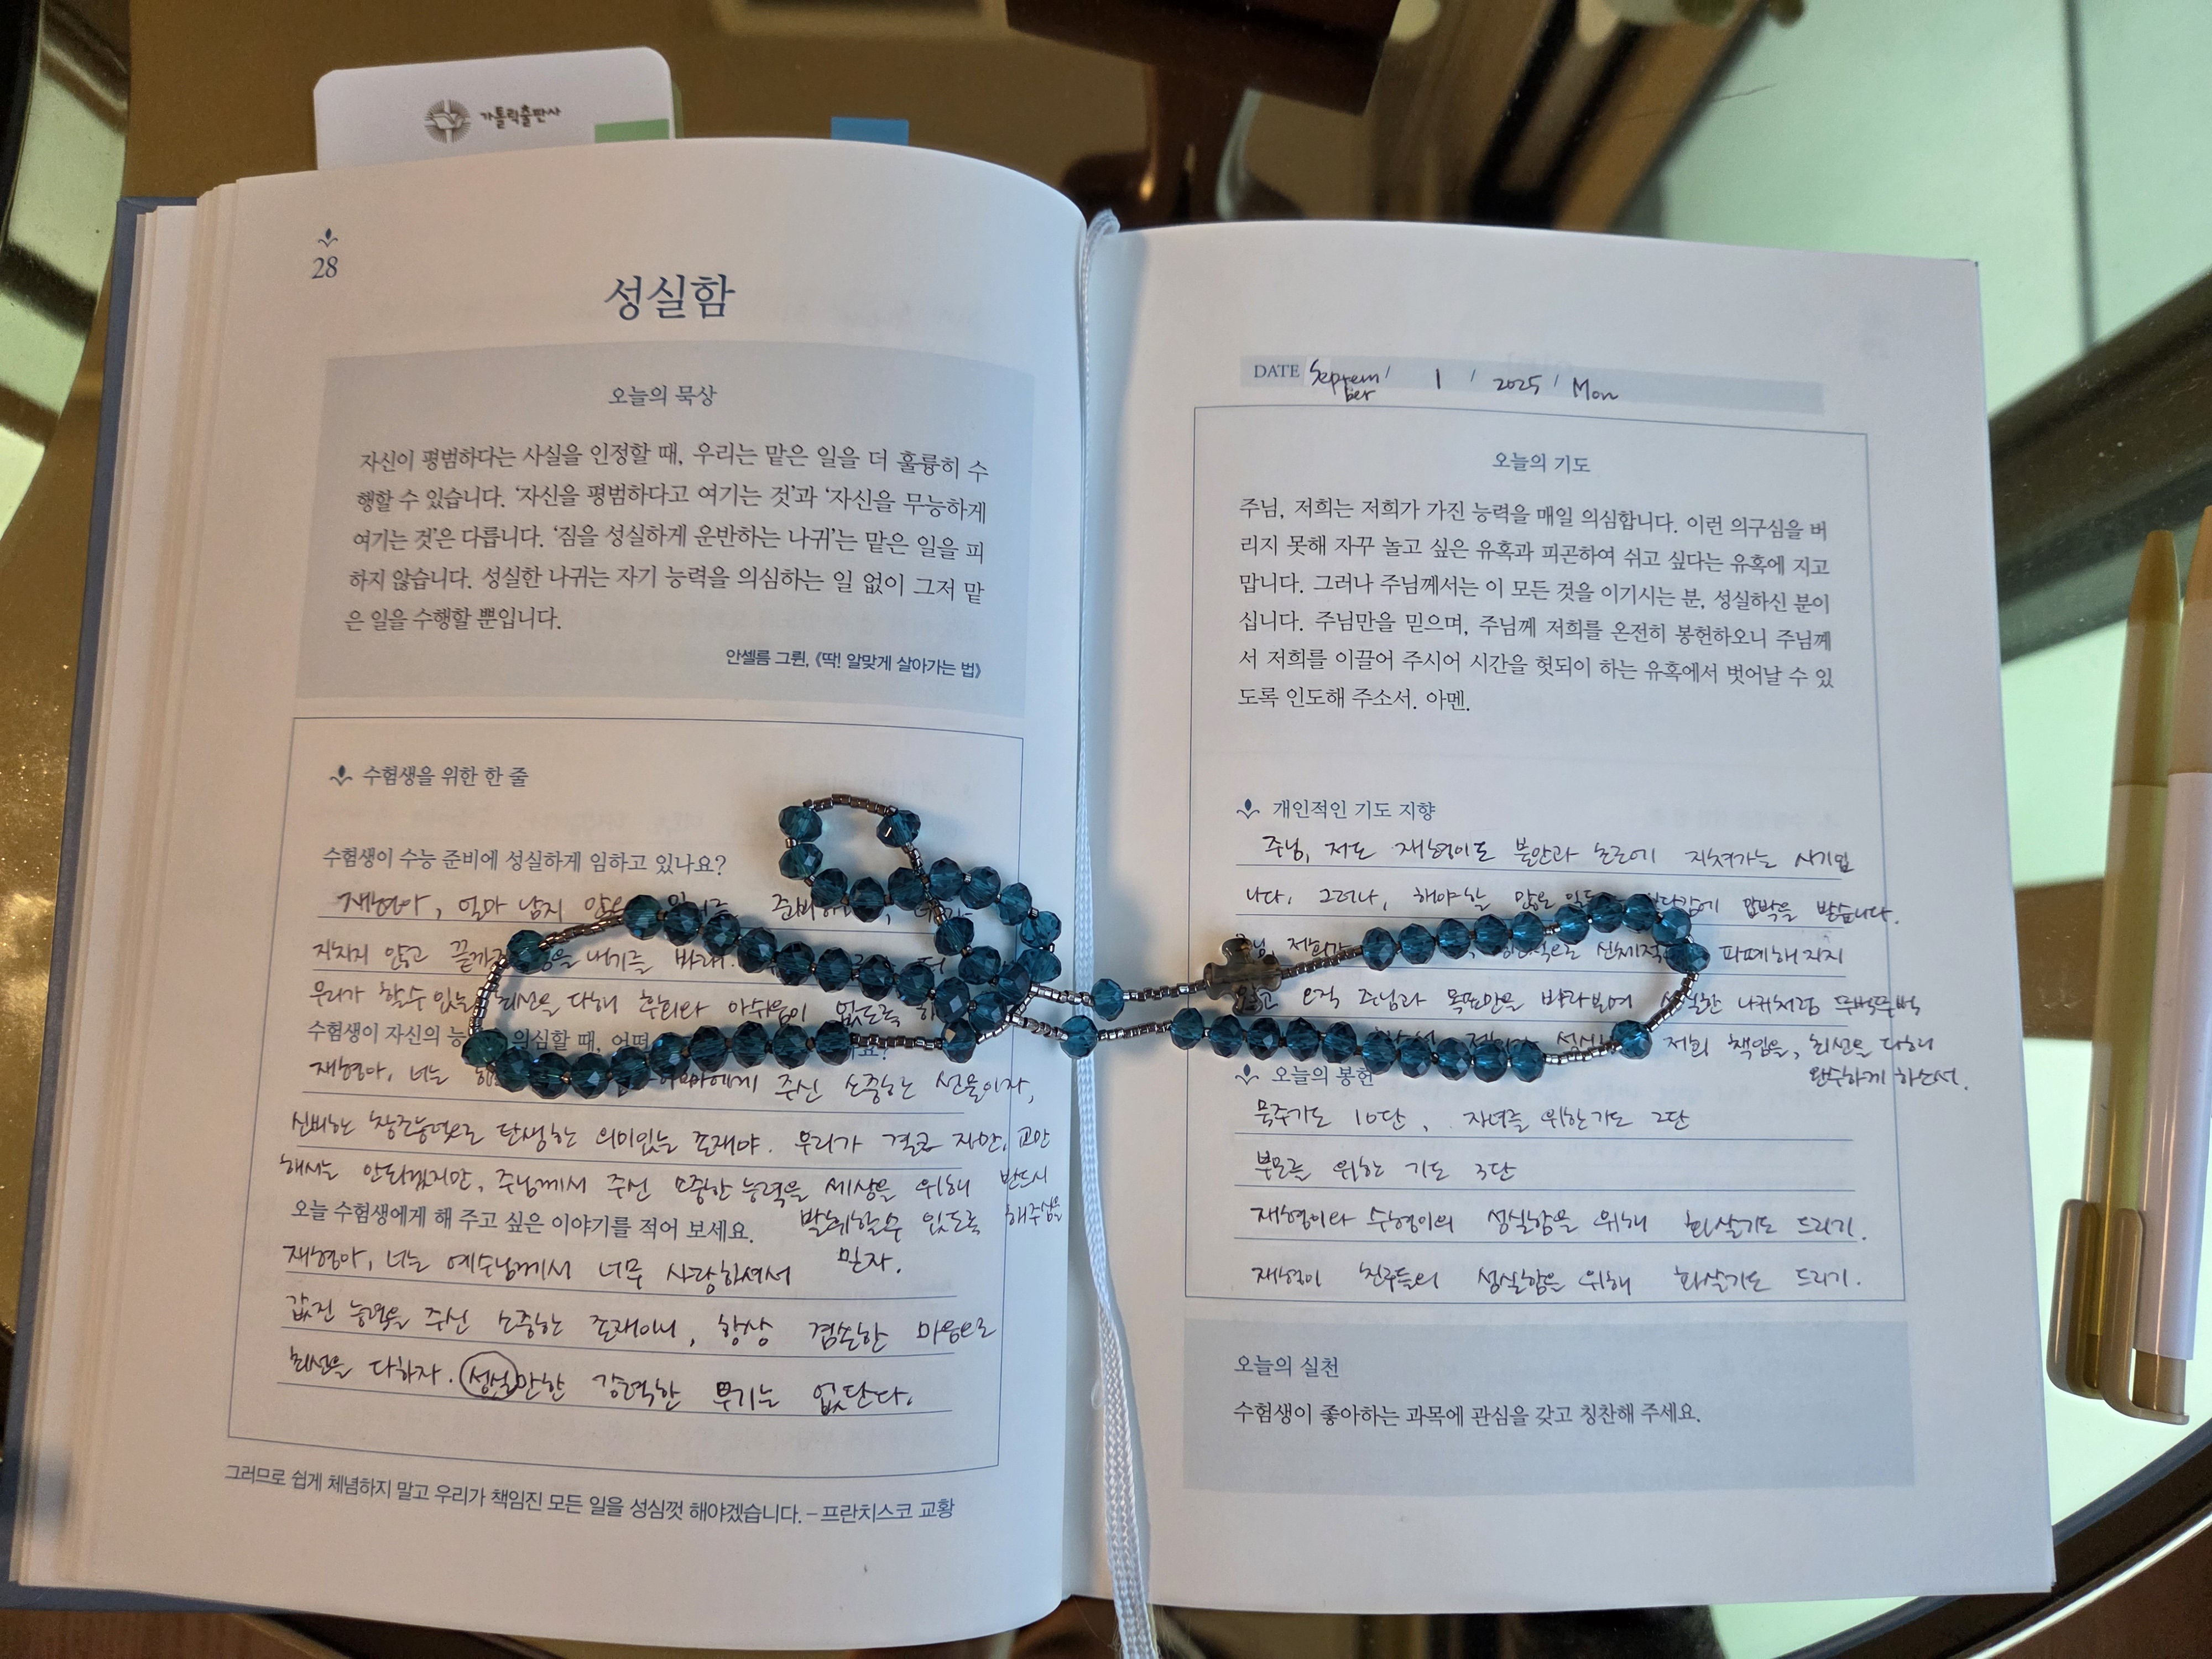 가톨릭출판사
28
성실함
오늘의 묵상
자신이 평범하다는 사실을 인정할 때, 우리는 맡은 일을 더 훌륭히 수
행할 수 있습니다. ‘자신을 평범하다고 여기는 것’과 ‘자신을 무능하게
여기는 것’은 다릅니다. ‘짐을 성실하게 운반하는 나귀’는 맡은 일을 피
하지 않습니다. 성실한 나귀는 자기 능력을 의심하는 일 없이 그저 맡
은 일을 수행할 뿐입니다.
안셀름 그륀, 《딱! 알맞게 살아가는 법》
수험생을 위한 한 줄
수험생이 수능 준비에 성실하게 임하고 있나요?
재형아, 얼마 남지
지치지 않고 내기를 바래.
우리가 할수 있는 최선을 다해 후회와 아쉬움이 없도록
수험생이 자신의 의심할 때,
재형아, 너는 주신 소중한 선물이자,
신비한 창조능력으로 탄생한 의미있는 존재야. 우리가 결코 자만, 교만
해서는 안되겠지만, 주님께서 주신 소중한 능력을 세상을 위해 반드시
오늘 수험생에게 해 주고 싶은 이야기를 적어 보세요. 발휘할수 있도록 해주심을
믿자.
재형아, 너는 예수님께서 너무 사랑하셔서
값진 능력을 주신 소중한 존재이니, 항상 겸손한 마음으로
최선을 다하자. 성실만한 강력한 무기는 없단다.
그러므로 쉽게 체념하지 말고 우리가 책임진 모든 일을 성심껏 해야겠습니다. – 프란치스코 교황
DATE Septem / 1 / 2025 / Mon
ber
오늘의 기도
주님, 저희는 저희가 가진 능력을 매일 의심합니다. 이런 의구심을 버
리지 못해 자꾸 놀고 싶은 유혹과 피곤하여 쉬고 싶다는 유혹에 지고
맙니다. 그러나 주님께서는 이 모든 것을 이기시는 분, 성실하신 분이
십니다. 주님만을 믿으며, 주님께 저희를 온전히 봉헌하오니 주님께
서 저희를 이끌어 주시어 시간을 헛되이 하는 유혹에서 벗어날 수 있
도록 인도해 주소서. 아멘.
개인적인 기도 지향
주님, 저도 재형이도 불안과 지쳐가는 시기입
니다. 그러나, 해야할 많은 압박을 받습니다.
저희가 신체적 파폐해지지
않고 오직 주님과 목표만을 바라보며 나귀처럼 뚜벅뚜벅
저희 책임을, 최선을 다해
완수하게 하소서.
오늘의 봉헌
묵주기도 10단, 자녀를 위한기도 2단
부모를 위한 기도 3단
재형이와 수형이의 성실함을 위해 화살기도 드리기.
재형이 친구들의 성실함을 위해 화살기도 드리기.
오늘의 실천
수험생이 좋아하는 과목에 관심을 갖고 칭찬해 주세요.